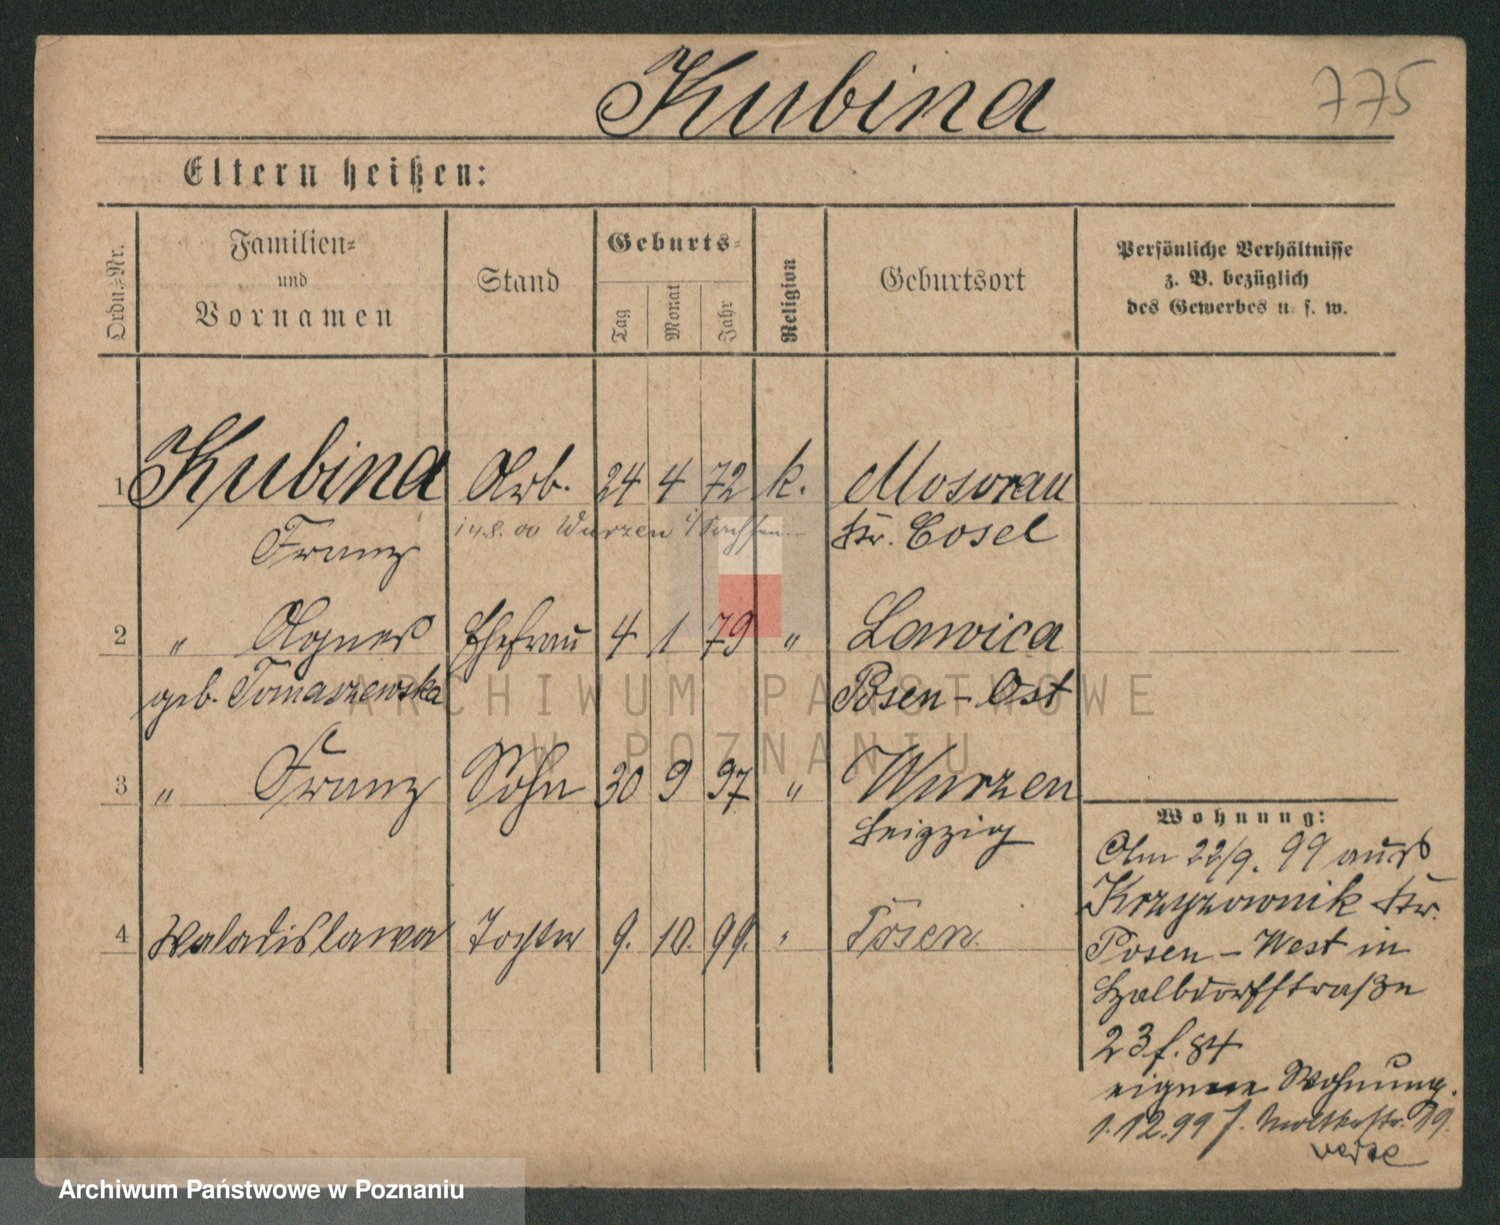 Kubina
775
Eltern heißen:
Ordn.-Nr.
Familien-
und
Vornamen
Stand
Geburts-
Tag
Monat
Jahr
Religion
Geburtsort
Persönliche Verhältnisse
z. B. bezüglich
des Gewerbes u. s. w.
1 Kubina Arb. 24 4 72 k. Mosurau
Franz Wurzen i/Sachsen Kr. Cosel
2 " Agnes Ehefrau 4 1 79 " Lawica
geb. Tomaszewska Posen-Ost
3 " Franz Sohn 30 9 97 " Wurzen
Leipzig
4 Waladislawa Tochter 9. 10. 99. " Posen.
Wohnung:
Am 22/9. 99 aus
Krzyzownik Kr.
Posen-West in
Halbdorfstraße
23 f. 84
eigene Wohnung.
1.12.99 Moltkestr. 19.
ARCHIWUM PAŃSTWOWE
W POZNANIU
Archiwum Państwowe w Poznaniu